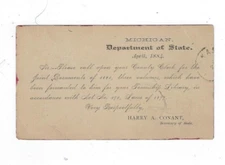 MICHIGAN.
Department of State,
April, 1882.
Please call upon your County Clerk for the
Joint Documents of 1881, three volumes, which have
been forwarded to him for your Township Library, in
accordance with Act No. Laws of
Very Respectfully,
HARRY A. CONANT,
Secretary of State.